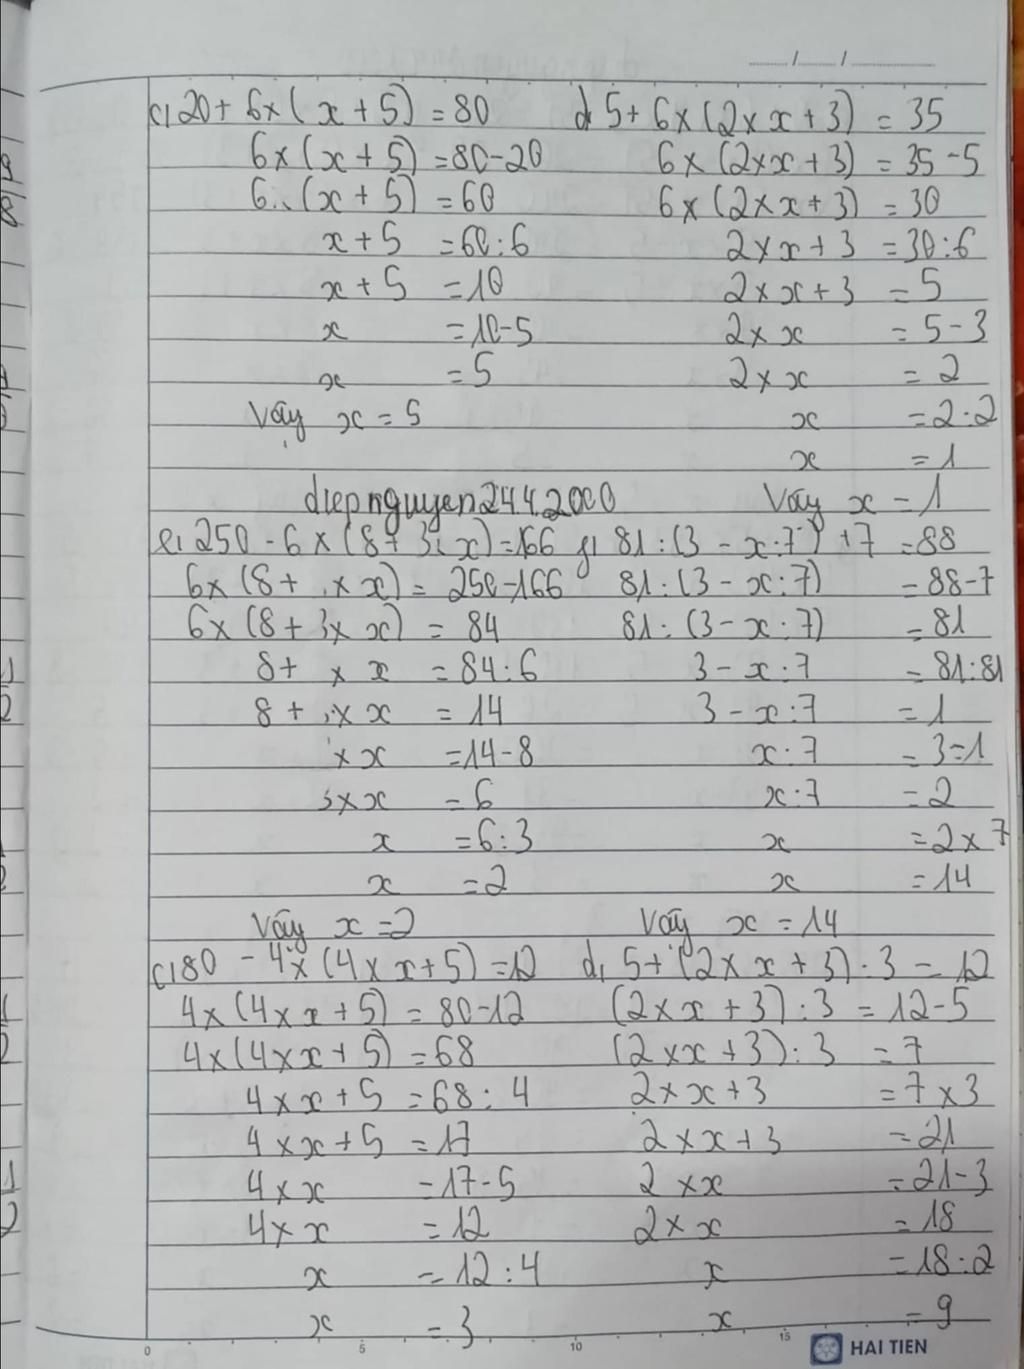 c, 20 + 6 x ( x + 5 ) = 80
6 x ( x + 5 ) = 80 - 20
6 . ( x + 5 ) = 60
x + 5 = 60 : 6
x + 5 = 10
x = 10 - 5
x = 5
Vậy x = 5
d, 5 + 6 x ( 2 x x + 3 ) = 35
6 x ( 2 x x + 3 ) = 35 - 5
6 x ( 2 x x + 3 ) = 30
2 x x + 3 = 30 : 6
2 x x + 3 = 5
2 x x = 5 - 3
2 x x = 2
x = 2 : 2
x = 1
Vậy x = 1
diepnguyen244.2000
e, 250 - 6 x ( 8 + 3 x x ) = 166
6 x ( 8 + x x ) = 250 - 166
6 x ( 8 + 3 x x ) = 84
8 + x x = 84 : 6
8 + x x = 14
x x = 14 - 8
3 x x = 6
x = 6 : 3
x = 2
Vậy x = 2
g, 81 : ( 3 - x : 7 ) + 7 = 88
81 : ( 3 - x : 7 ) = 88 - 7
81 : ( 3 - x : 7 ) = 81
3 - x : 7 = 81 : 81
3 - x : 7 = 1
x : 7 = 3 = 1
x : 7 = 2
x = 2 x 7
x = 14
Vậy x = 14
c, 80 - 4 x ( 4 x x + 5 ) = 12
4 x ( 4 x x + 5 ) = 80 - 12
4 x ( 4 x x + 5 ) = 68
4 x x + 5 = 68 : 4
4 x x + 5 = 17
4 x x = 17 - 5
4 x x = 12
x = 12 : 4
x = 3
d, 5 + ( 2 x x + 3 ) : 3 = 12
( 2 x x + 3 ) : 3 = 12 - 5
( 2 x x + 3 ) : 3 = 7
2 x x + 3 = 7 x 3
2 x x + 3 = 21
2 x x = 21 - 3
2 x x = 18
x = 18 : 2
x = 9
0 5 10 15
HAI TIEN